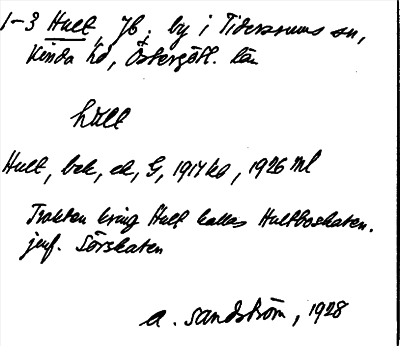 1-3 Hult, Jb; by i Tidersrums sn,
Kinda hd, Östergötl. län
hult
Hult, bek, ek, G, 1917 ka, 1926 ml
Trakten kring Hult kallas Hultboskaten.
jmf. Sörskaten
A. Sandström, 1928